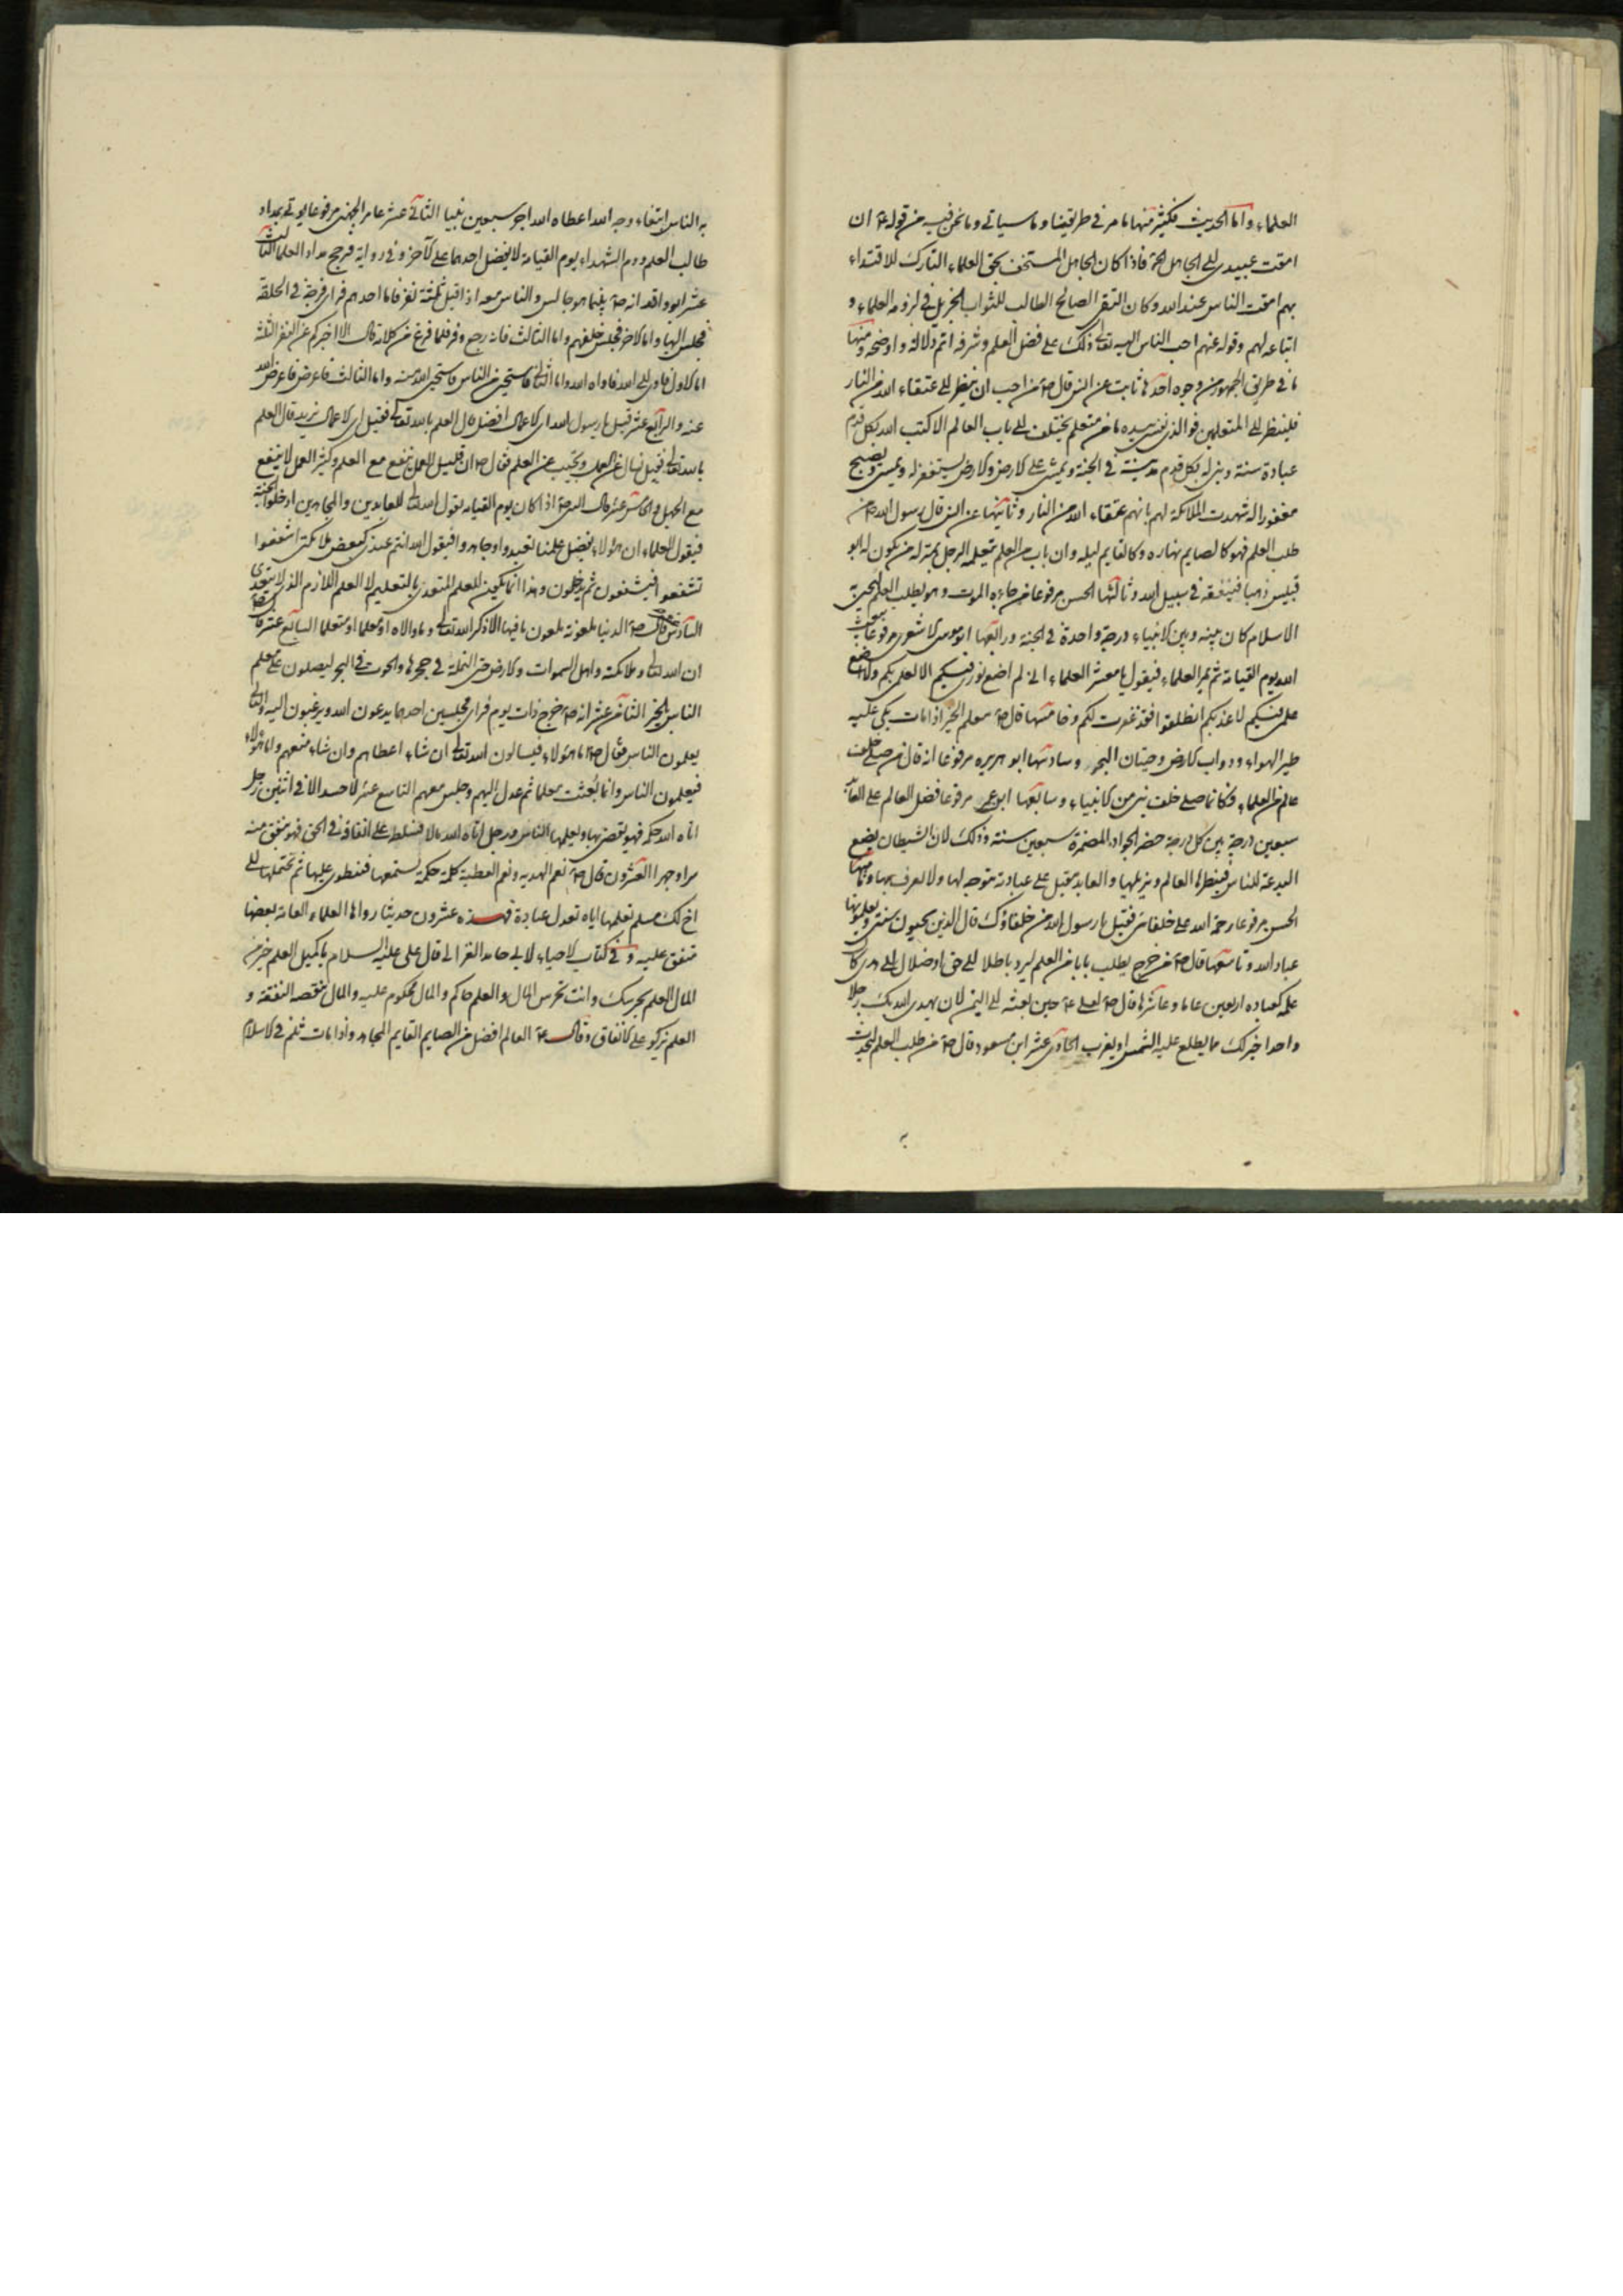 العلماء واما الحديث فكثير منها ما مر في طريقنا وما سياتي وما نحن فيه من قوله ع ان
امقت عبيدى الى الجاهل الخ فاذا كان الجاهل المستخف بحق العلماء التارك للاقتداء
بهم امقت الناس عند الله وكان التقى الصالح الطالب للثواب الجزيل في لزومه العلماء و
اتباعه لهم وقوله عنهم احب الناس اليه تعالى ذلك على فضل العلم وشرفه اتم دلالة واوضحه ومنها
ما في طريق الجمهور من وجوه احدها ثابت عن انس قال ص من احب ان ينظر الى عتقاء الله من النار
فلينظر الى المتعلمين فوالذى نفسى بيده ما من متعلم يختلف الى باب العالم الا كتب الله بكل قدم
عبادة سنة وبنى له بكل قدم مدينة في الجنة ويمشى على الارض والارض يستغفر له ويمسى ويصبح
مغفورا له شهدت الملائكة لهم بانهم عتقاء الله من النار وثانيتها عن انس قال رسول الله ص من
طلب العلم فهو كالصايم نهاره وكالقايم ليله وان باب من العلم يتعلمه الرجل خير له من يكون له ابو
قبيس ذهبا فينفقه في سبيل الله وثالثها الحسن مرفوعا من جاءه الموت وهو يطلب العلم ليحيى
الاسلام كان بينه وبين الانبياء درجة واحدة في الجنة ورابعها ابو موسى الاشعرى مرفوعا يبعث
الله يوم القيامة ثم يميز العلماء فيقول يا معشر العلماء انى لم اضع نورى فيكم الا لعلمى بكم ولم اضع
علمى فيكم لاعذبكم انطلقوا فقد غفرت لكم وخامستها قال ص معلم الخير اذا مات بكى عليه
طير الهواء ودواب الارض وحيتان البحر وسادستها ابو هريره مرفوعا انه قال من صلى خلف
عالم من العلماء فكانما صلى خلف نبى من الانبياء وسابعها ابن عمر مرفوعا فضل العالم على العابد
سبعين درجة بين كل درجة حضر الجواد المضمرة سبعين سنة وذلك لان الشيطان يضع
البدعة للناس فينظرها العالم ويزيلها والعابد يقبل على عبادته لا يتوجه لها ولا يعرف بها وثامنها
الحسن مرفوعا رحمة الله على خلفائى فقيل يا رسول الله من خلفاؤك قال الذين يحيون سنتى ويعلمونها
عباد الله وتاسعها قال ص من خرج يطلب بابا من العلم ليرد باطلا الى حق او ضلال الى هدى كان
عمله كعباده اربعين عاما وعاشرها قال ص لعلى ع حين بعثه الى اليمن لان يهدى الله بك رجلا
واحدا خير لك مما يطلع عليه الشمس او يغرب الحادى عشر ابن مسعود قال ص من طلب العلم ليحدث
به
به الناس ابتغاء وجه الله اعطاه الله اجر سبعين نبيا الثانى عشر عامر الجهنى مرفوعا يوتى بمداد
طالب العلم ودم الشهداء يوم القيامة لا يفضل احدهما على الآخر وفي رواية فرجح مداد العلما الثالث
عشر ابو واقد انه ص بينما هو جالس والناس معه اذ اقبل ثلثة نفر فاما احدهم فراى فرجة في الحلقة
فجلس اليها واما الاخر فجلس خلفهم واما الثالث فانه رجع وفر فلما فرغ من كلامه قال الا اخبركم عن النفر الثلثة
اما الاول فاوى الى الله فاواه الله واما الثانى فاستحيى من الناس فاستحيى الله منه واما الثالث فاعرض فاعرض الله
عنه والرابع عشر قيل يا رسول الله اى الاعمال افضل قال العلم بالله تعالى فقيل اى الاعمال نريد قال العلم
بالله تعالى فقيل نسال عن العمل وتجيب عن العلم فقال ص ان قليل العمل ينفع مع العلم وكثير العمل لا ينفع
مع الجهل والخامس عشر قال النبى ص اذا كان يوم القيامه يقول الله تعالى للعابدين والمجاهدين ادخلوا الجنة
فيقول العلماء ان هؤلاء بفضل علمنا تعبدوا وجاهدوا فيقول الله انتم عندى كبعض ملائكتى اشفعوا
تشفعوا فيشفعون ثم يدخلون وهذا انما يكون للعلم المتعدى بالتعليم لا العلم اللازم الذى لا يتعدى
السادس عشر قال ص الدنيا ملعونة ملعون ما فيها الا ذكر الله تعالى وما والاه او معلما او متعلما السابع عشر قال النبى ص
ان الله تعالى وملائكته واهل السموات والارض حتى النملة في جحرها والحوت في البحر ليصلون على معلم
الناس الخير الثامن عشر انه ص خرج ذات يوم فراى مجلسين احدهما يدعون الله ويرغبون اليه والثانى
يعلمون الناس فقال ص اما هؤلاء فيسالون الله تعالى ان شاء اعطاهم وان شاء منعهم واما هؤلاء
فيعلمون الناس وانما بعثت معلما ثم عدل اليهم وجلس معهم التاسع عشر لا حسد الا في اثنين رجل
اتاه الله حكمه فهو يقضى بها ويعلمها الناس ورجل اتاه الله مالا فسلطه على انفاقه في الحق فهو ينفق منه
سرا وجهرا العشرون قال ص نعم الهديه ونعم العطية كلمة حكمة تسمعها فتنطوى عليها ثم تحملها الى
اخ لك مسلم تعلمها اياه تعدل عبادة فهذه عشرون حديثا رواها العلماء العامة بعضها
متفق عليه وفي كتاب الاحياء لابى حامد الغزالى قال على عليه السلام يا كميل العلم خير من
المال العلم يحرسك وانت تحرس المال والعلم حاكم والمال محكوم عليه والمال تنقصه النفقة و
العلم يزكو على الانفاق وقال ع العالم افضل من الصايم القايم المجاهد واذا مات ثلم في الاسلام